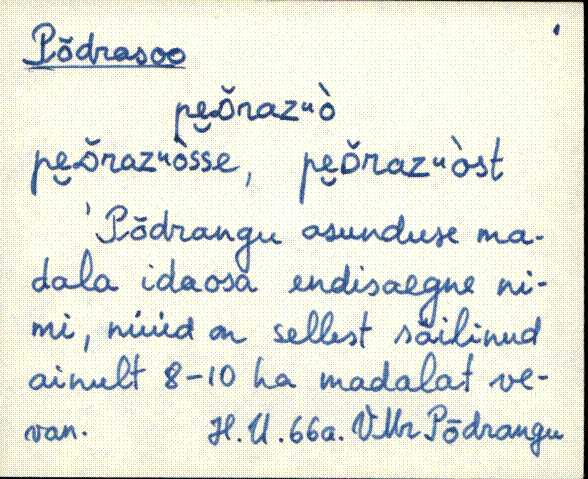 Põdrasoo
pe̮ŏrazᵘò
pe̮ŏrazᵘòsse, pe̮ŏrazᵘòst
'Põdrangu asunduse ma-
dala idaosa endisaegne ni-
mi, nüüd on sellest säilinud
ainult 8-10 ha madalat ve-
van. H.U. 66a. VMr Põdrangu